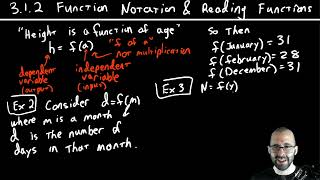 3.1.2 Function Notation & Reading Functions
"Height is a function of age"
h = f(a)
"f of a"
not multiplication
dependent variable (output)
independent variable (input)
Ex 2 Consider d=f(m)
where m is a month
d is the number of
days in that month.
So Then
f(January) = 31
f(february) = 28
f(December) = 31
Ex 3 N = f(y)